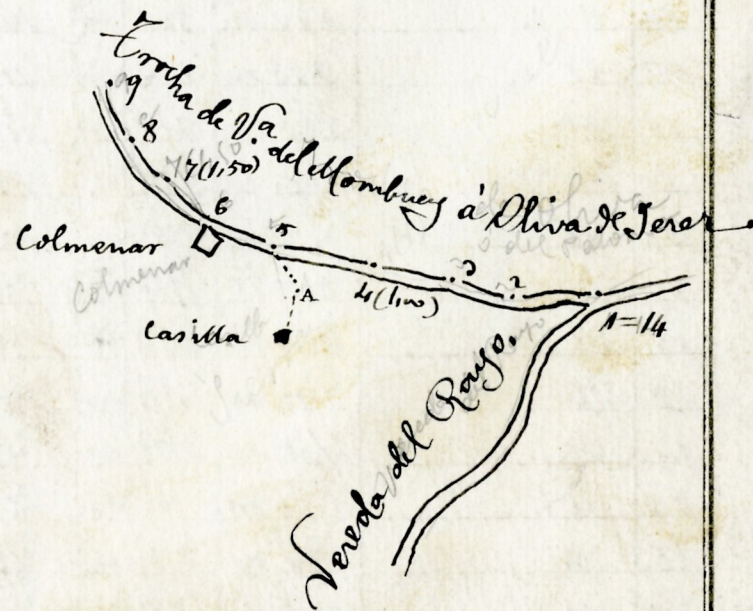 Trocha de Va. del Mombuey á Oliva de Jerez
9
8
7(1,50)
6
5
4(1,00)
3
2
1=14
Colmenar
Colmenar
A
Casilla
Vereda del Rayo.